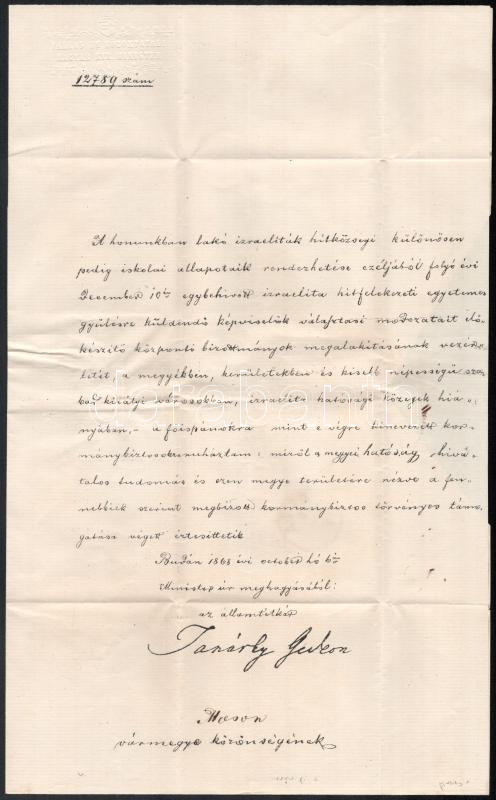 12789 szám
A honunkban lakó izraeliták hitközségi különösen
pedig iskolai állapotaik rendezhetése czéljából folyó évi
December 10ére egybehivott izraelita hitfelekezeti egyetemes
gyülésre küldendő képviselők választási mozzatait elő=
készitő központi bizottmányok megalakitásának vezér=
letét, a megyékben, kerületekben és kisebb népességü sza=
bad királyi városokban, izraelita hatósági közegek hiá=
nyában, – a főispánokra mint e végre kinevezett kor=
mánybiztosokra ruháztam: miről a megyei hatóság, hiva=
talos tudomás és ezen megye területére nézve a fen=
nebbiek szerint megbizott kormánybiztos törvényes támo=
gatása végett értesittetik
Budán 1868 évi october hó 6án
Minister úr meghagyásából:
az államtitkár
Tanárky Gedeon
Moson
vármegye közönségének